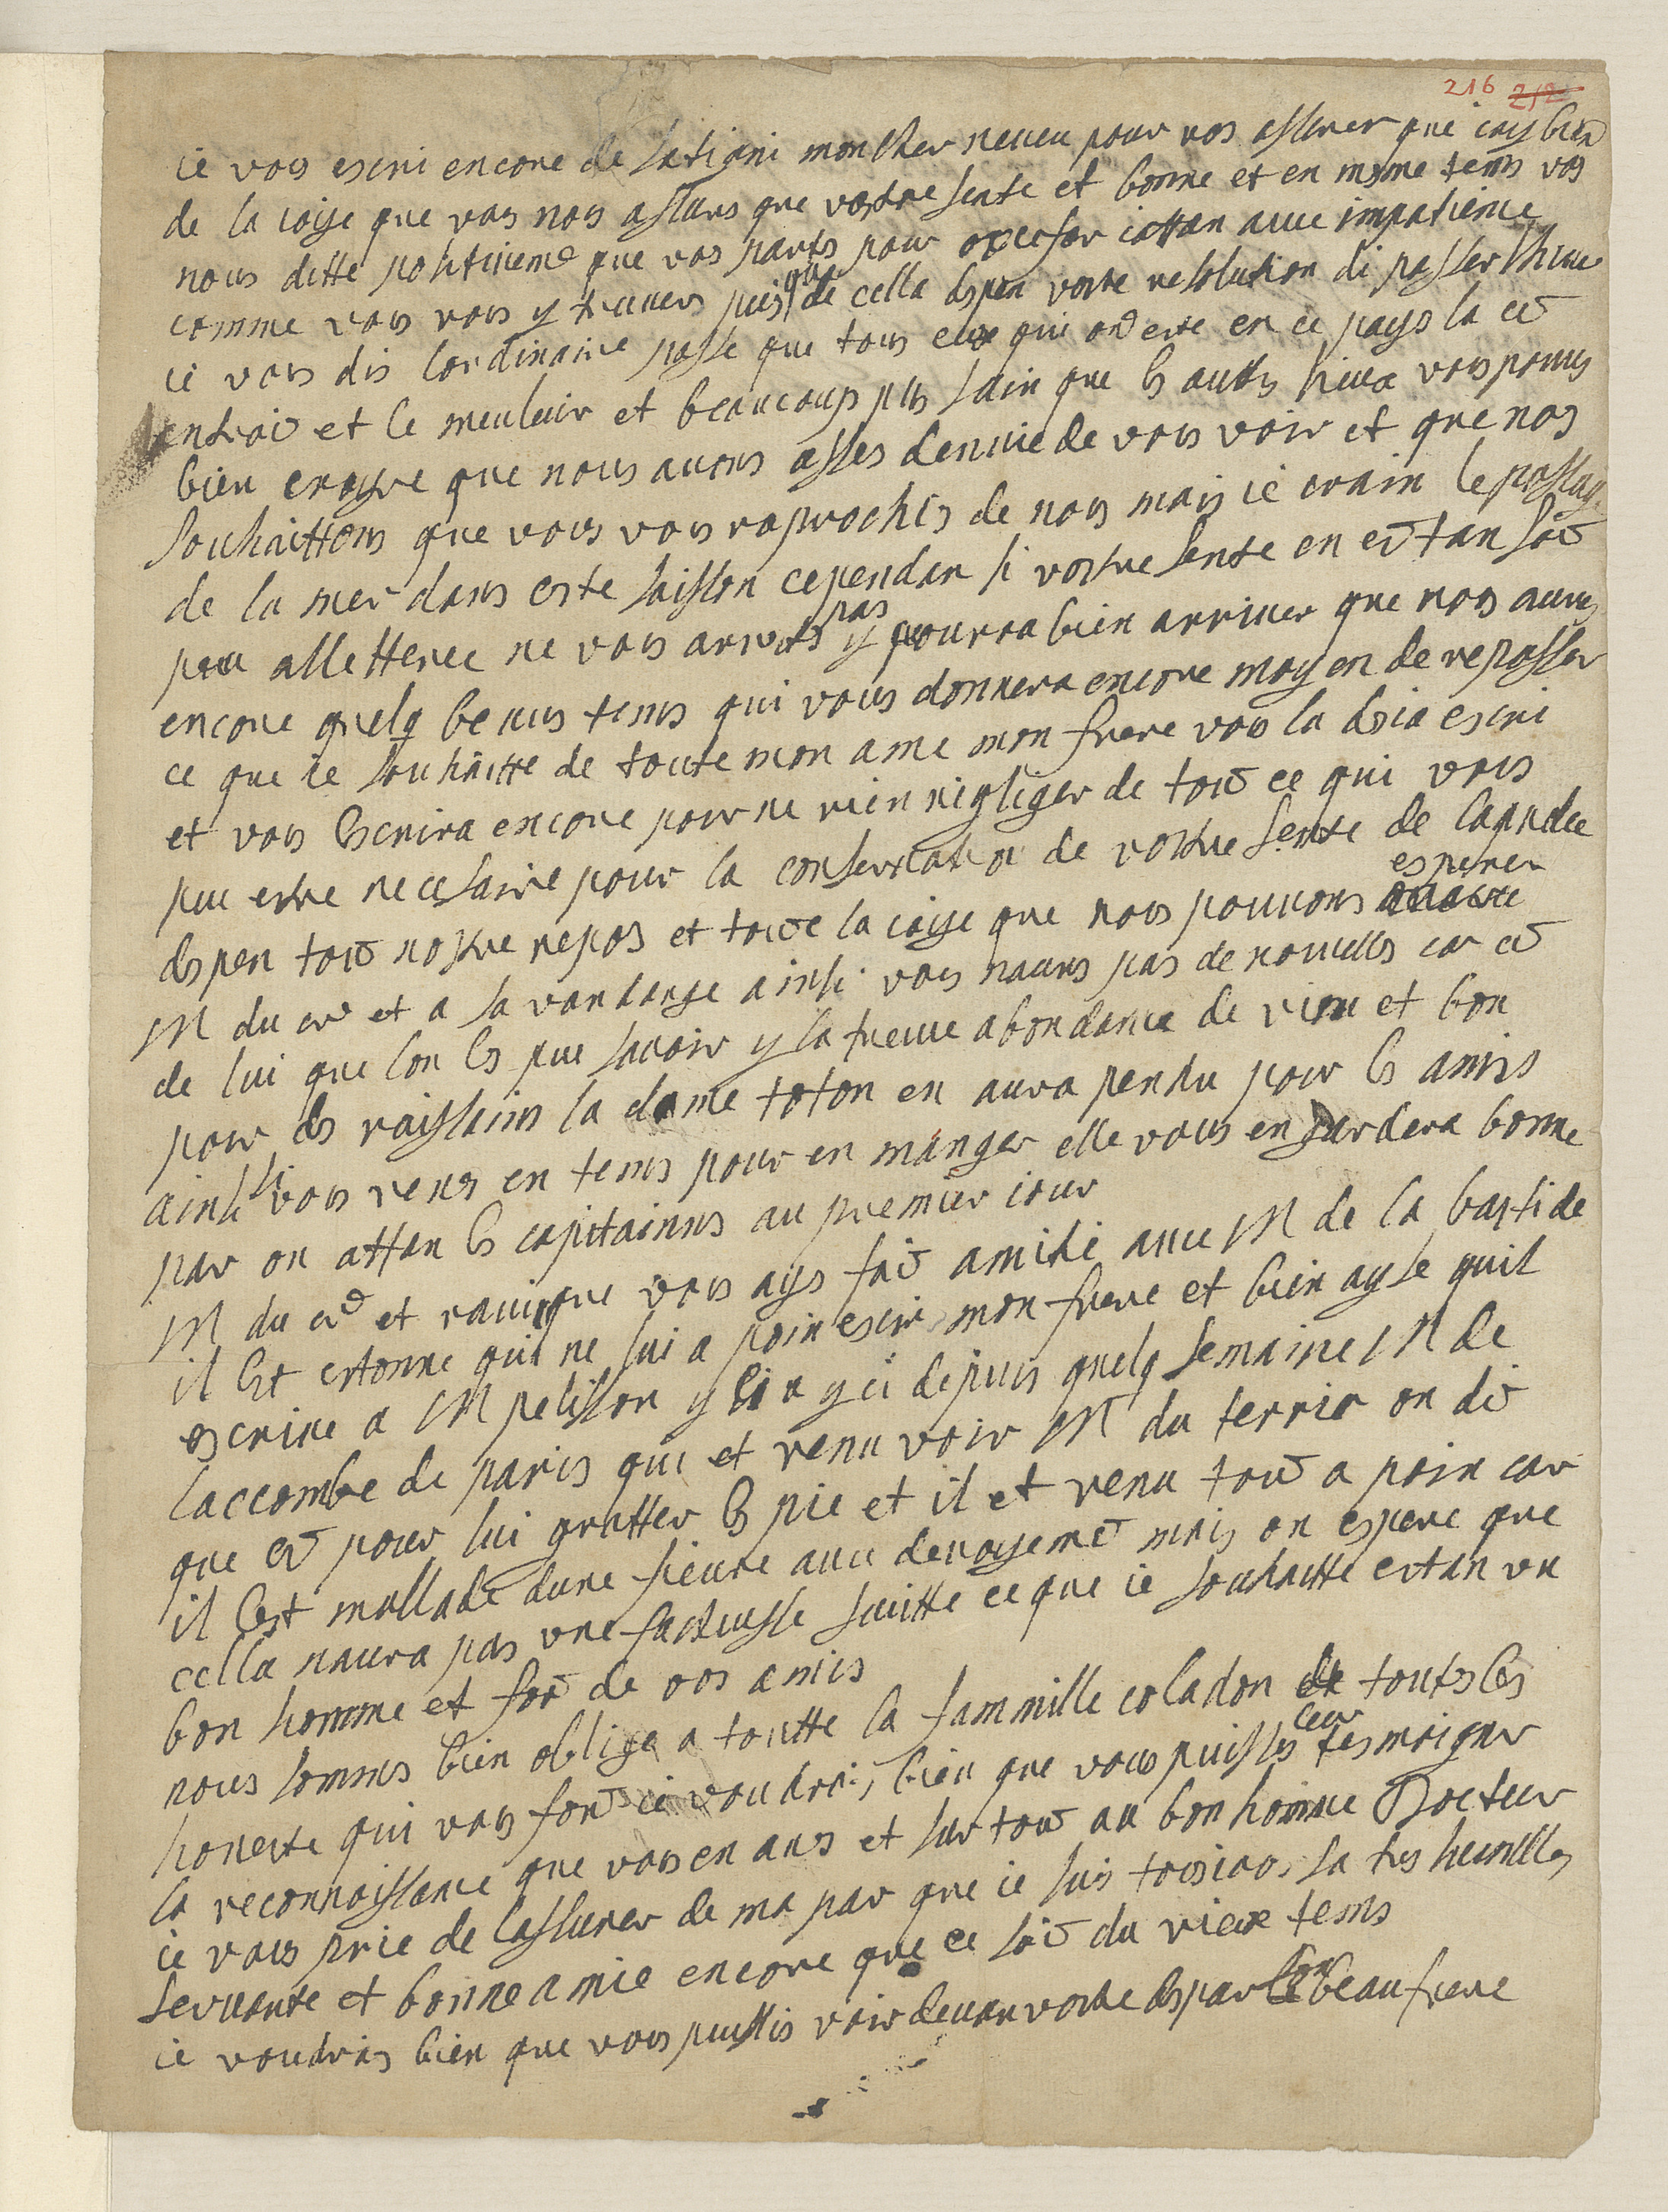 216 212
ie vous escri encore de satigni mon cher neveu pour vos assurer que iay bien
de la ioye que vous nous assurs que vostre sente et bonne et en mesme tems vos
nous ditte positiveme que vos parts pour oxcefor iattan avec impatience
comme vous vous y truuers puis que de cella depen vostre resolution di passer lhiver
ie vous dis lordinaire passe que tous ceux qui ont este en ce pays la cet
entroit et le meuleur et beaucoup plus sain que les autts lieux vous pouves
bien croyre que nous avons asses denvie de vous voir et que nos
souhaittons que vous vous raprochies de nous mais ie crain le passage
de la mer dans este saisson cependan si vostre sente en estan soit
peu alletteree ne vous arretes pas y pourra bien arriver que nos aures
encore quelq beaus tems qui vous donnera encore moyen de repasser
ce que ie souhaitte de toute mon ame mon frere vous la desia escri
et vous escrira encore pour ne rien negliger de tout ce qui vous
peu estre necessaire pour la conservation de vostre sente de laquelle
depen tout nostre repos et toute la ioye que nous pouvons esperer
M du cr et a la vandange ainsi vous naures pas de nouvelles car cet
de lui que lon les peu savoir y la treuve abondance de vin et bon
pour des raissains la dame toton en aura pendu pour les amis
ainsi si vous venes en tems pour en manger elle vous en gardera bonne
par on attan les capitainnes au premier iour
M du cr et ravi que vous ays fait amitie avec M de la bastide
il est estonne qui ne lui a poin escri mon frere et bien ayse quil
escrive a M pelisson y lia yci depuis quelq semaine M de
laccombe de paris qui et venu voir M du terrier on dit
que cet pour lui gratter les pie et il et venu tout a poin car
il lest mallade dune fievre avec devoyement mais on espere que
cella naura pas une facheusse suitte ce que ie souhaitte estan un
bon homme et fort de vos amis
nous sommes bien oblige a toutte la fammille coladon de toutes les
honeste qui vous font ie voudrois bien que vous puisses leur tesmoigner
la reconnoissance que vous en aves et sur tout au bon homme Docteur
ie vous prie de lassurer de ma par que ie suis tousiours sa tres heumble
servante et bonne amie encore que ce soit du vieux tems
ie voudrais bien que vous puissies voir devan vostre depar son beau frere